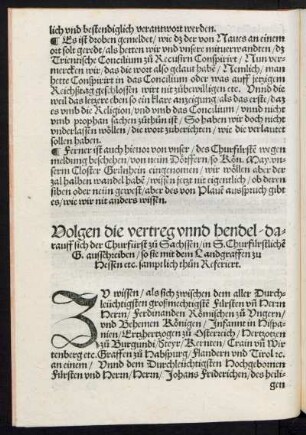 lich vnd bestendiglich verantwort werden.
¶ Es ist droben gemeldet/ wie dz der von Naues an einem
ort solt geredt/ als hetten wir vnd vnsere mituerwandten/ dz
Trientische Concilium zů Recusirn Conspirirt/ Nun ver-
mercken wir/ das die wort also gelaut habē/ Nemlich/ man
hette Conspirirt in das Concilium oder was auff jetzigem
Reichstag geschlossen wirt mit zůbewilligen etc. Vnnd die
weil das letzere eben so ein klare anzeigung als das erste/ daz
es vmb die Religion/ vnd vmb das Concilium/ vnnd nicht
vmb prophan sachen zůthůn ist/ So haben wir doch nicht
vnderlassen wöllen/ die wort zuberichten/ wie die verlautet
sollen haben.
¶ Ferner ist auch hienor von vnser/ des Churfürstē wegen
meldung beschehen/ von neün Dörffern/ so Kön. May. vn-
serm Closter Grünhein eingenomen/ wir wöllen aber der
zal halben wandel habē/ wissen jetzt nit eigentlich/ ob deren
siben oder neün gewest/ aber des von Plauē ausspruch gibt
es/ wie wir nit anders wissen.
Volgen die vertreg vnnd hendel/ da-
rauff sich der Churfürst zů Sachssen/ in S. Churfürstlichē
G. ausschreiben/ so sie mit dem Landgraffen zu
Hessen etc. samptlich thůn Referiert.
ZV wissen/ als sich zwischen dem aller Durch-
leüchtigsten großmechtigstē Fürsten vñ Herrn
Herrn/ Ferdinanden Römischen zů Vngern/
vnd Behemen Königen/ Infannt in Hispa-
nien/ Ertzhertzogen zů Osterreich/ Hertzogen
zů Burgundi/ Steyr/ Kernten/ Crain vñ Wir
tenberg etc. Graffen zů Habspurg/ Flandern vnd Tirol etc.
an einem/ Vnnd dem Durchleüchtigsten Hochgebornen
Fürsten vnd Herrn/ Herrn/ Johans Friderichen/ des heili-
gen